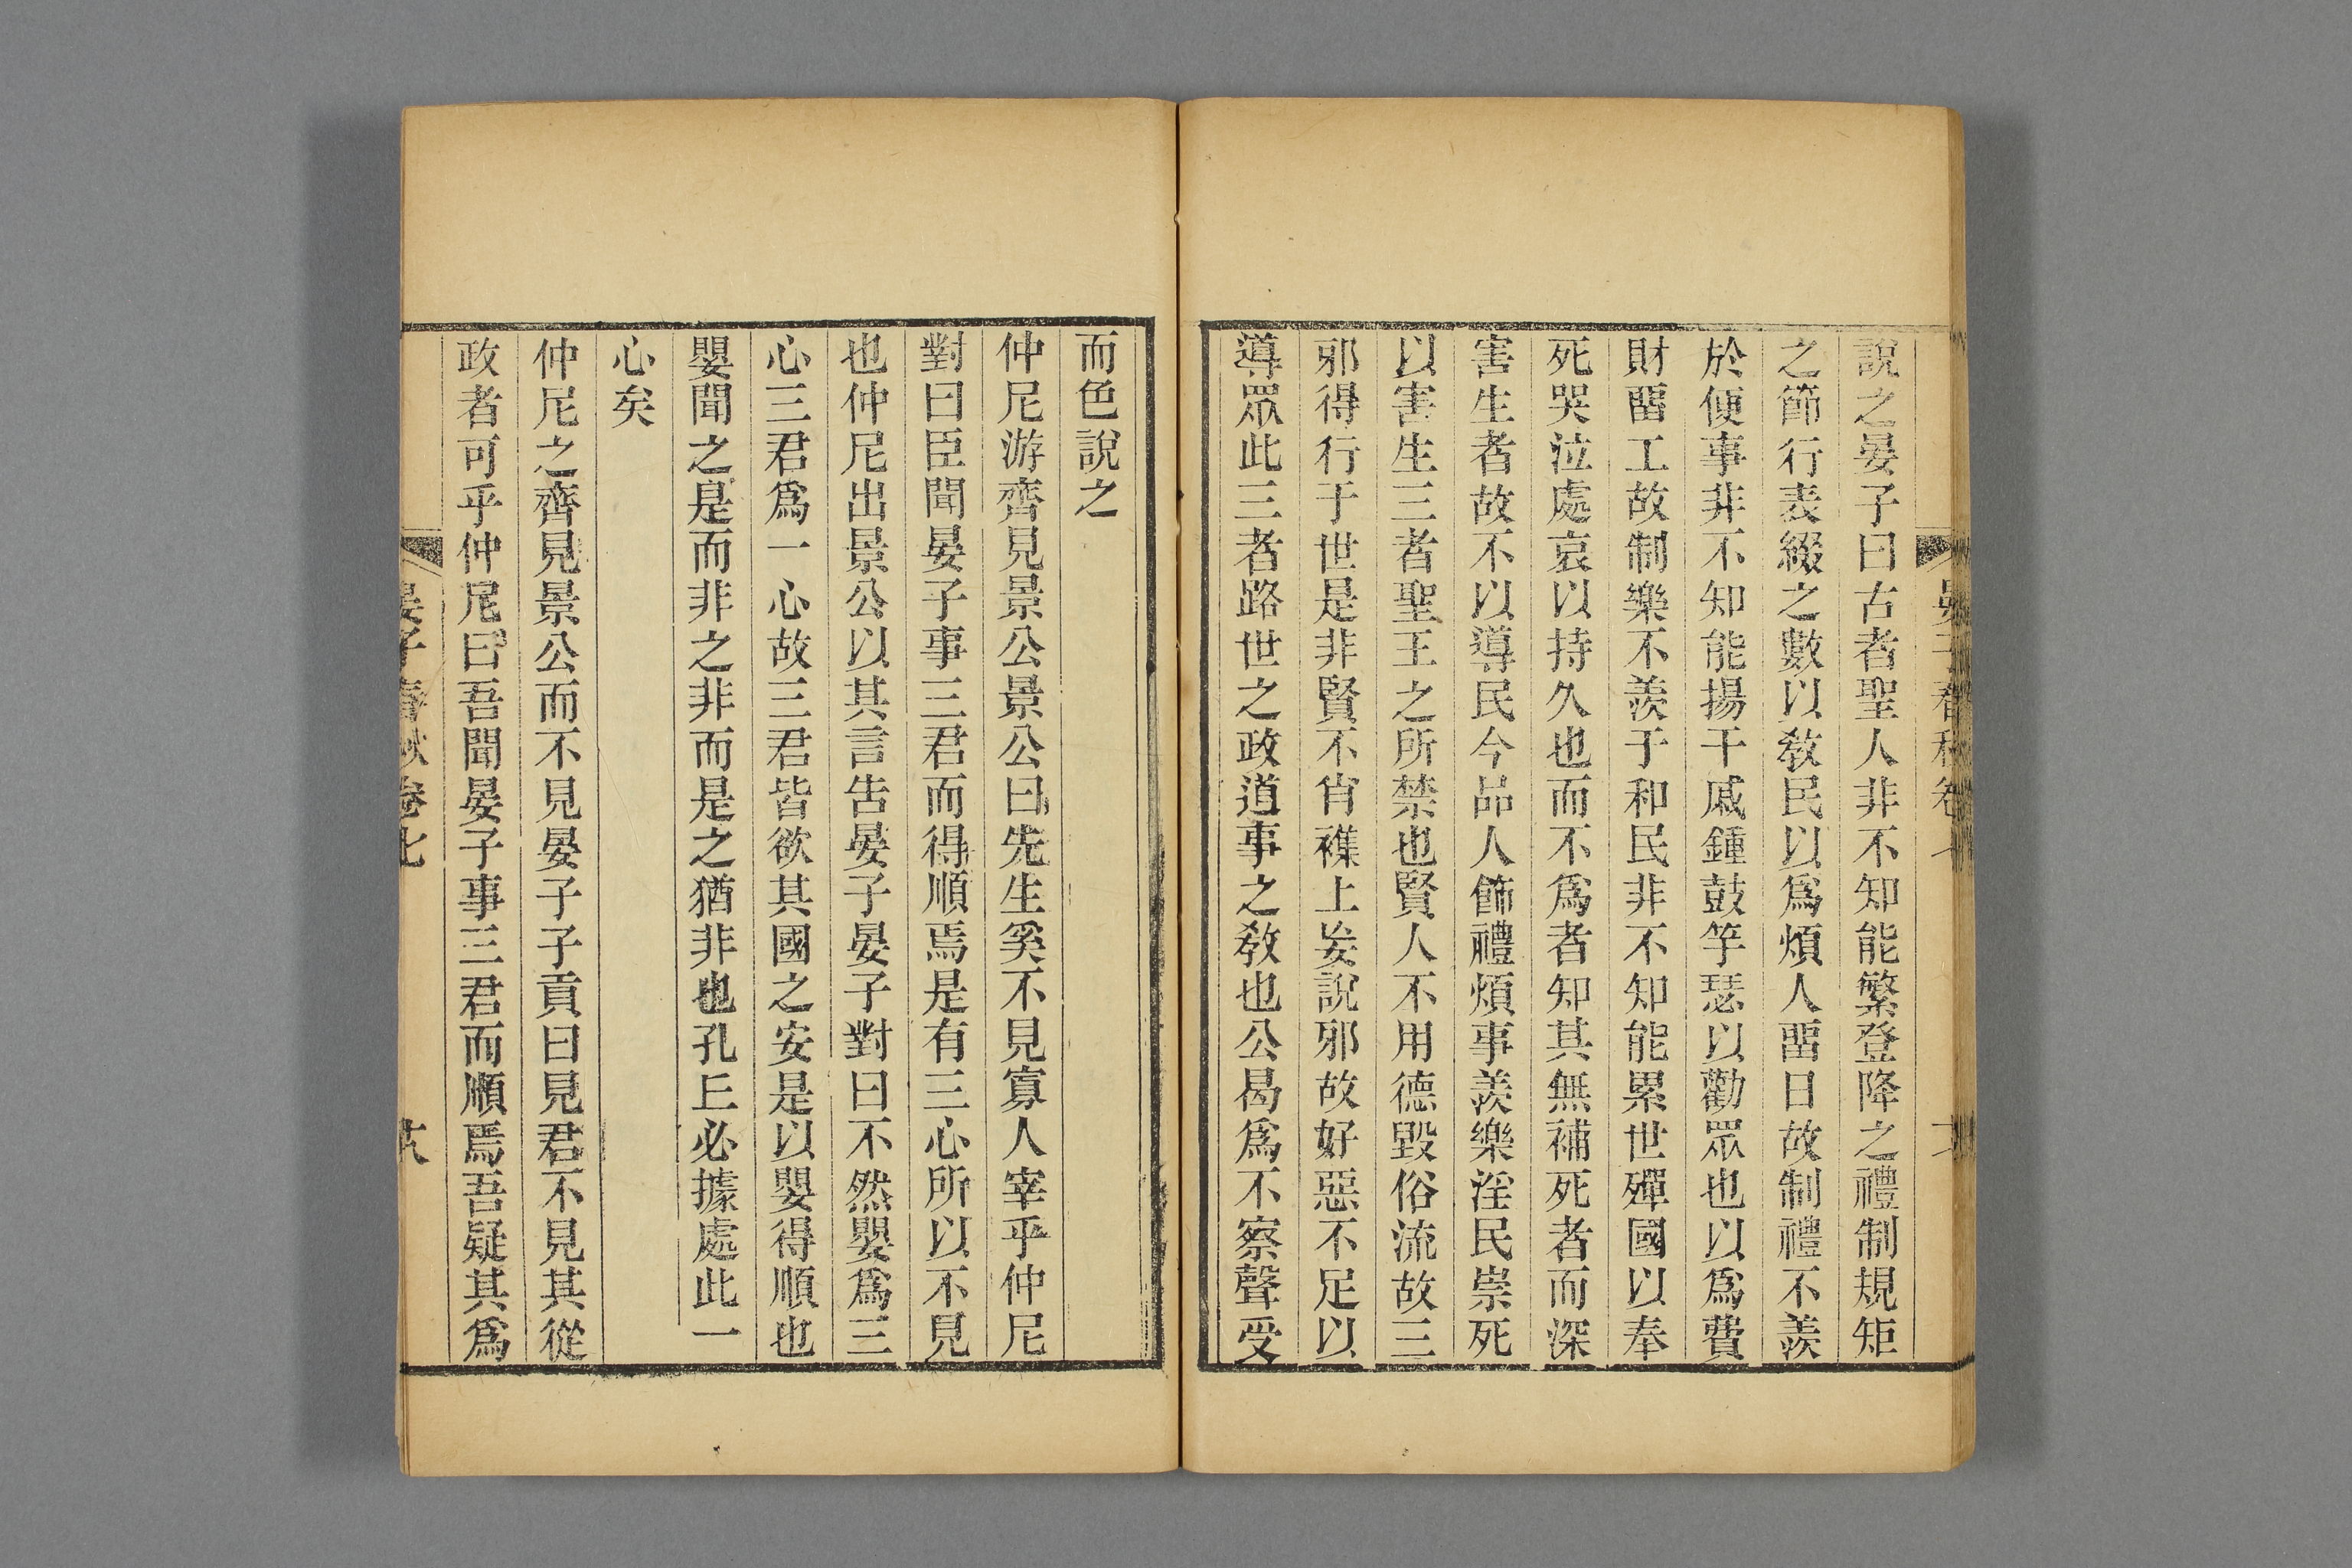 說之晏子曰古者聖人非不知能繁登降之禮制規矩
之節行表綴之數以敎民以爲煩人畱日故制禮不羨
於便事非不知能揚干戚鍾鼓竽瑟以勸眾也以爲費
財畱工故制樂不羨于和民非不知能累世殫國以奉
死哭泣處哀以持久也而不爲者知其無補死者而深
害生者故不以導民今品人飾禮煩事羨樂淫民崇死
以害生三者聖王之所禁也賢人不用德毀俗流故三
邪得行于世是非賢不肖襍上妄說邪故好惡不足以
導眾此三者路世之政道事之敎也公曷爲不察聲受
而色說之
仲尼游齊見景公景公曰先生奚不見寡人宰乎仲尼
對曰臣聞晏子事三君而得順焉是有三心所以不見
也仲尼出景公以其言告晏子晏子對曰不然嬰爲三
心三君爲一心故三君皆欲其國之安是以嬰得順也
嬰聞之是而非之非而是之猶非也孔丘必據處此一
心矣
仲尼之齊見景公而不見晏子子貢曰見君不見其從
政者可乎仲尼曰吾聞晏子事三君而順焉吾疑其爲
晏子春秋卷七